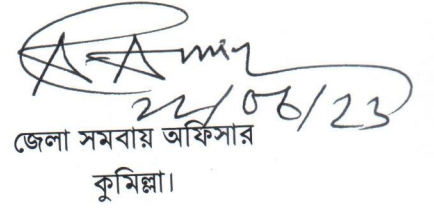 22/06/23
জেলা সমবায় অফিসার
কুমিল্লা।